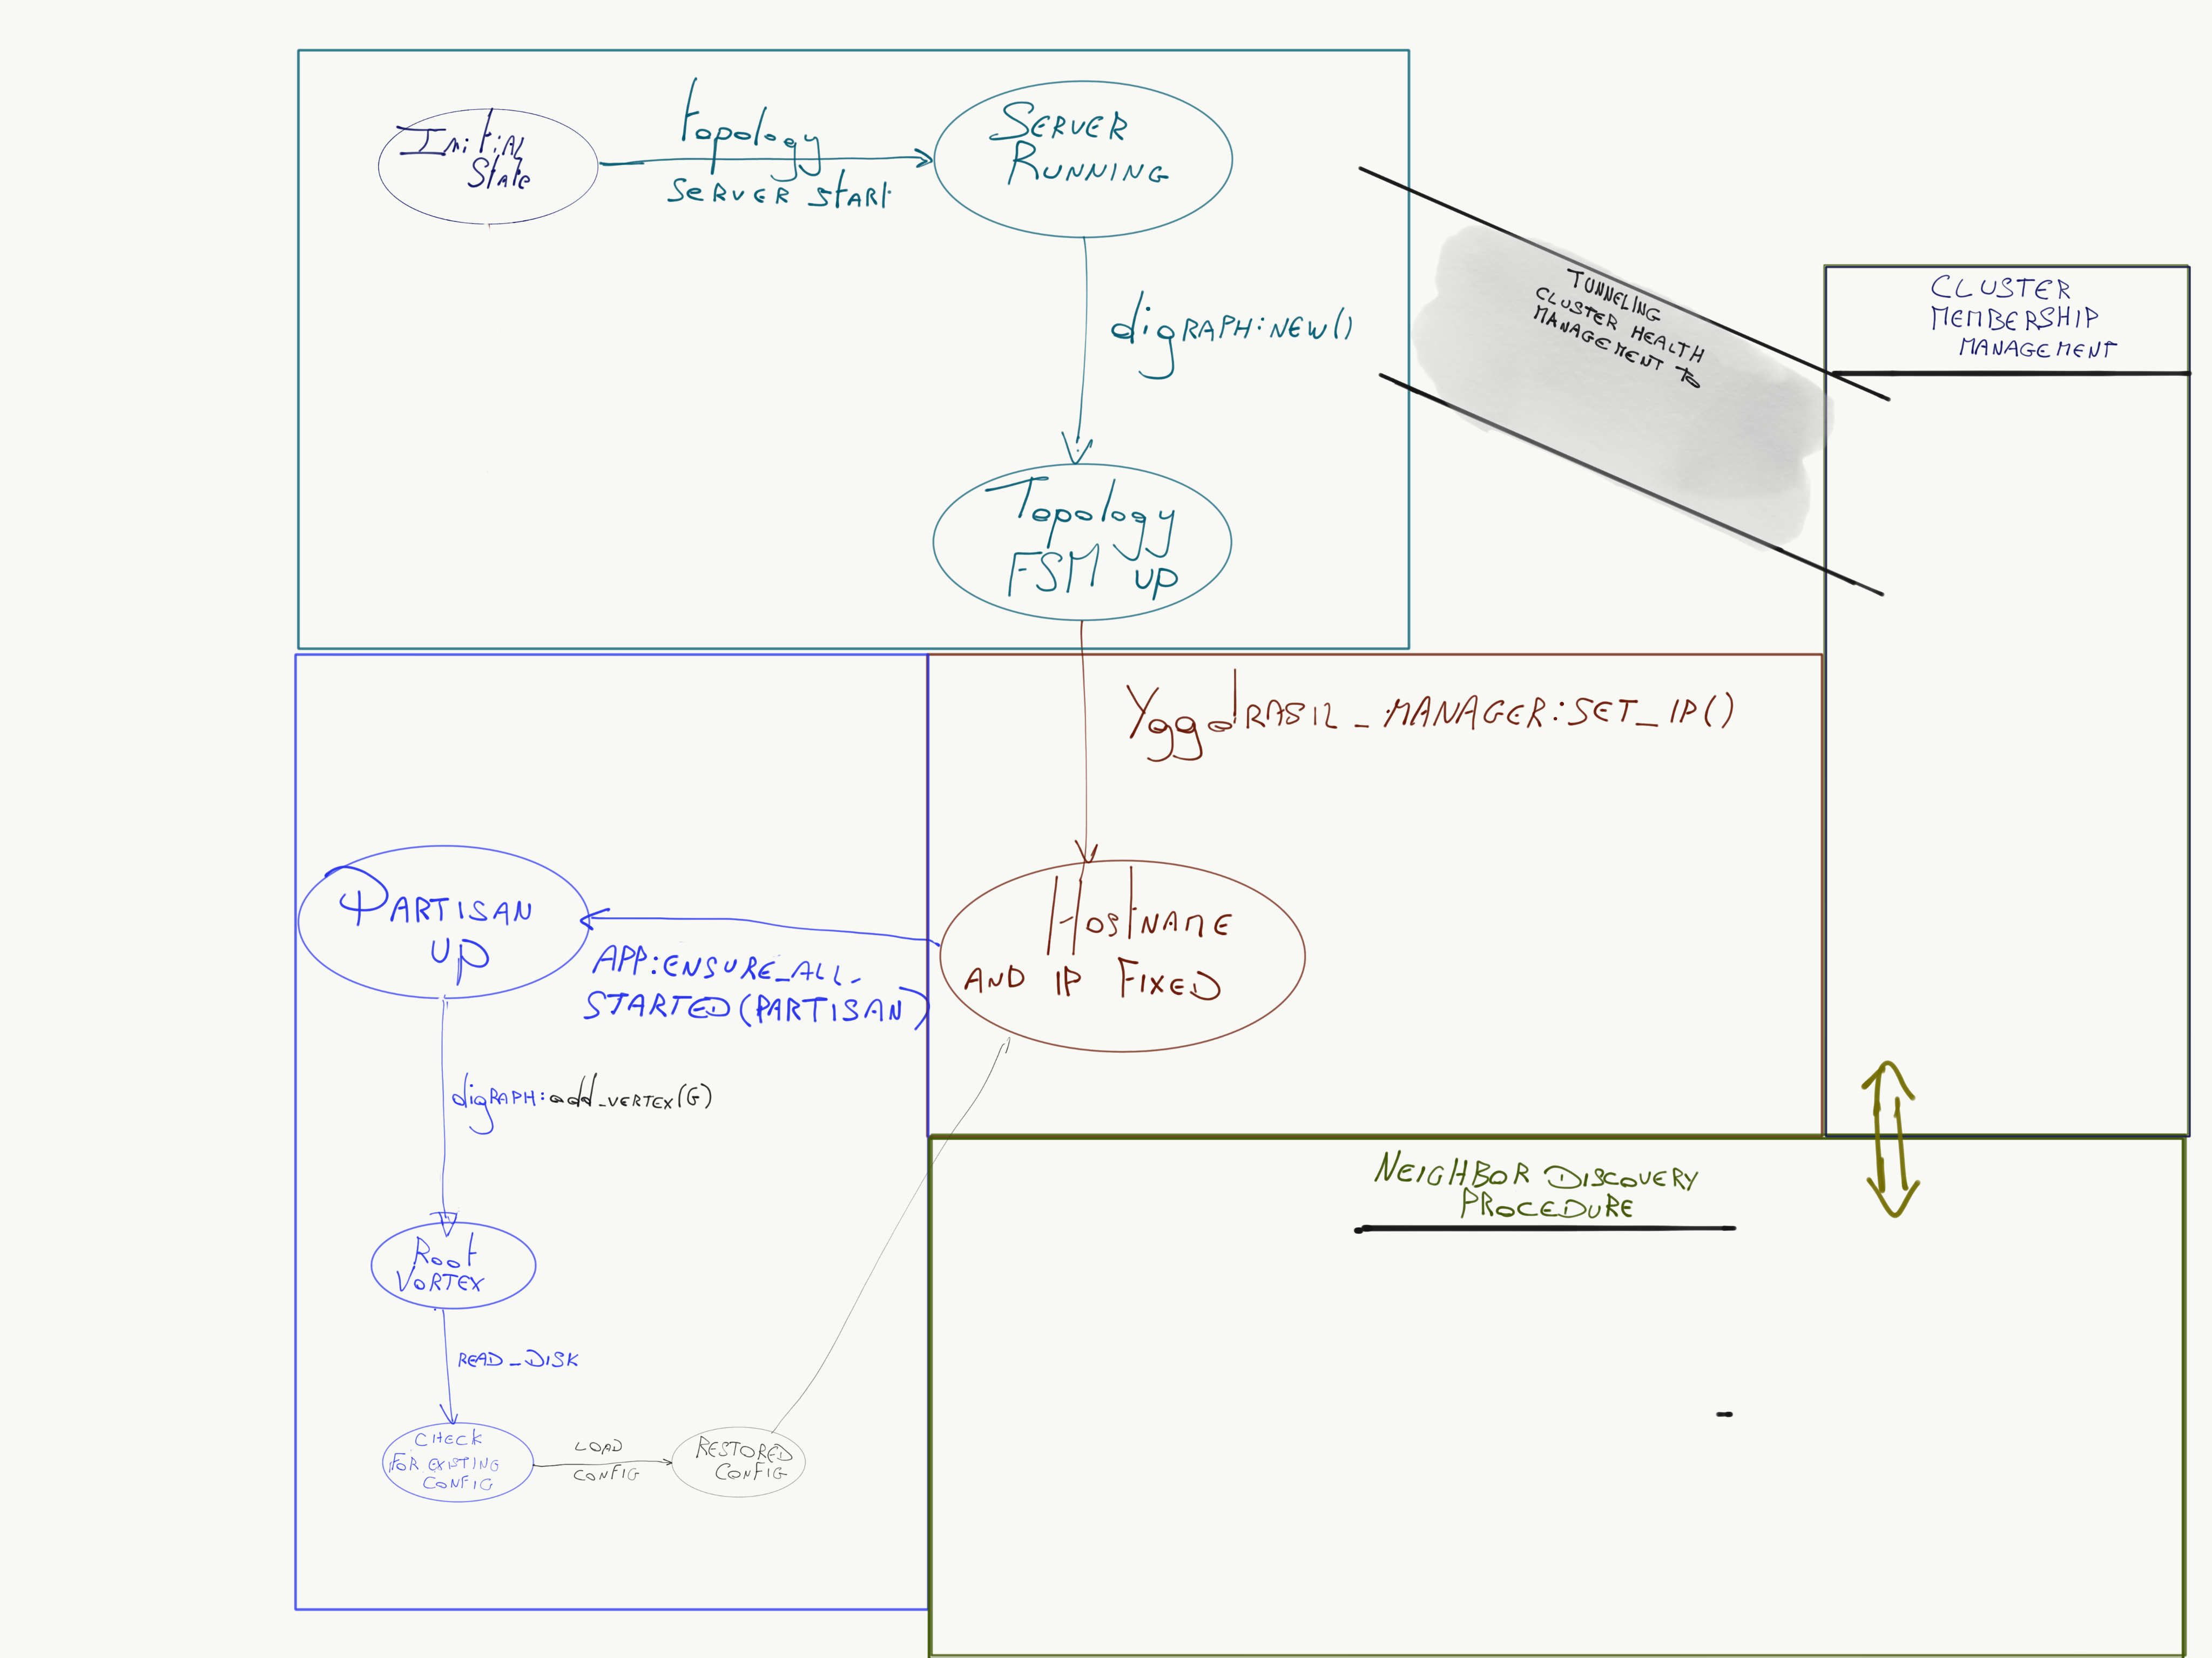 Initial
State
topology
SERVER START
SERVER
RUNNING
digRAPH:NEW()
Topology
FSM UP
TUNNELING
CLUSTER HEALTH
MANAGEMENT TO
CLUSTER
MEMBERSHIP
MANAGEMENT
YggdRASIL_MANAGER:SET_IP()
HOSTNAME
AND IP FIXED
PARTISAN
UP
APP:ENSURE_ALL_
STARTED(PARTISAN)
digRAPH:add_VERTEX(G)
Root
VORTEX
READ_DISK
CHECK
FOR EXISTING
CONFIG
LOAD
CONFIG
RESTORED
CONFIG
NEIGHBOR DISCOVERY
PROCEDURE